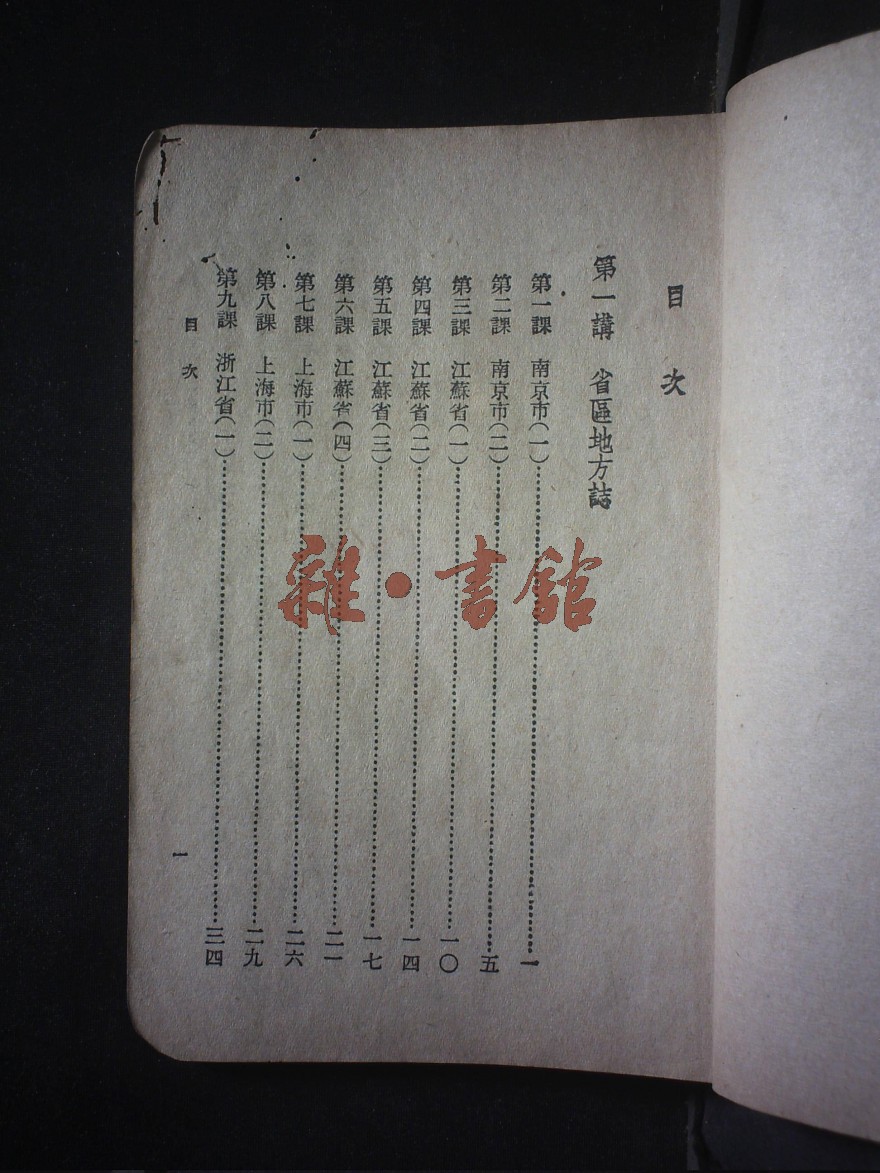 目次
第一講 省區地方誌
第一課 南京市(一)……一
第二課 南京市(二)……五
第三課 江蘇省(一)……一〇
第四課 江蘇省(二)……一四
第五課 江蘇省(三)……一七
第六課 江蘇省(四)……二一
第七課 上海市(一)……二六
第八課 上海市(二)……二九
第九課 浙江省(一)……三四
目次
一
雜·書館